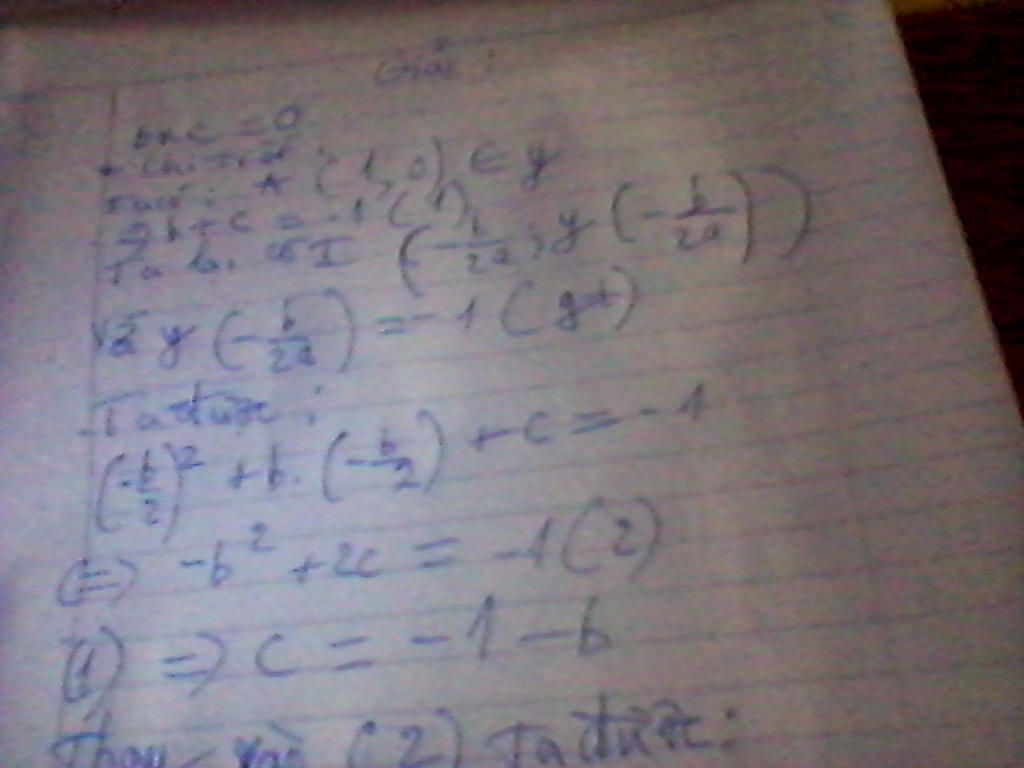 Giải:
bxc = 0
A (1; 0) ∈ y
=> b + c = -1 (1)
Ta lại có I (-b/2a; y(-b/2a))
Và y(-b/2a) = -1 (gt)
Ta được:
(-b/2)² + b.(-b/2) + c = -1
(=) -b² + 2c = -1 (2)
(1) => c = -1 - b
Thay vào (2) Ta được: